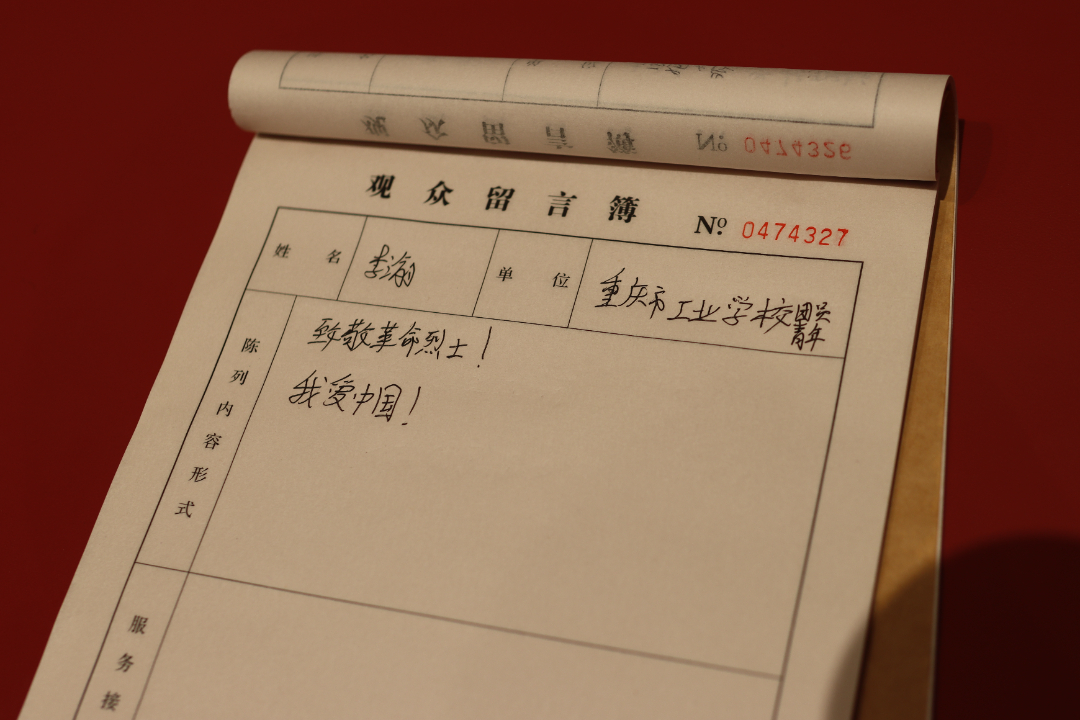 0474326
观众留言簿 Nº 0474327
姓名 李瀚 单位 重庆市工业学校团员青年
陈列内容形式
致敬革命烈士！
我爱中国！
服务接